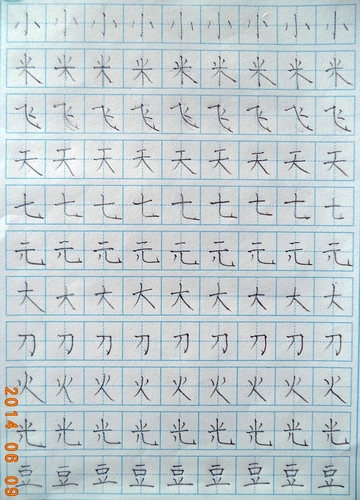 小 小 小 小 小 小 小 小 小
米 米 米 米 米 米 米 米 米
飞 飞 飞 飞 飞 飞 飞 飞 飞
天 天 天 天 天 天 天 天 天
七 七 七 七 七 七 七 七 七
元 元 元 元 元 元 元 元 元
大 大 大 大 大 大 大 大 大
刀 刀 刀 刀 刀 刀 刀 刀 刀
火 火 火 火 火 火 火 火 火
光 光 光 光 光 光 光 光 光
豆 豆 豆 豆 豆 豆 豆 豆 豆
2014 06 09